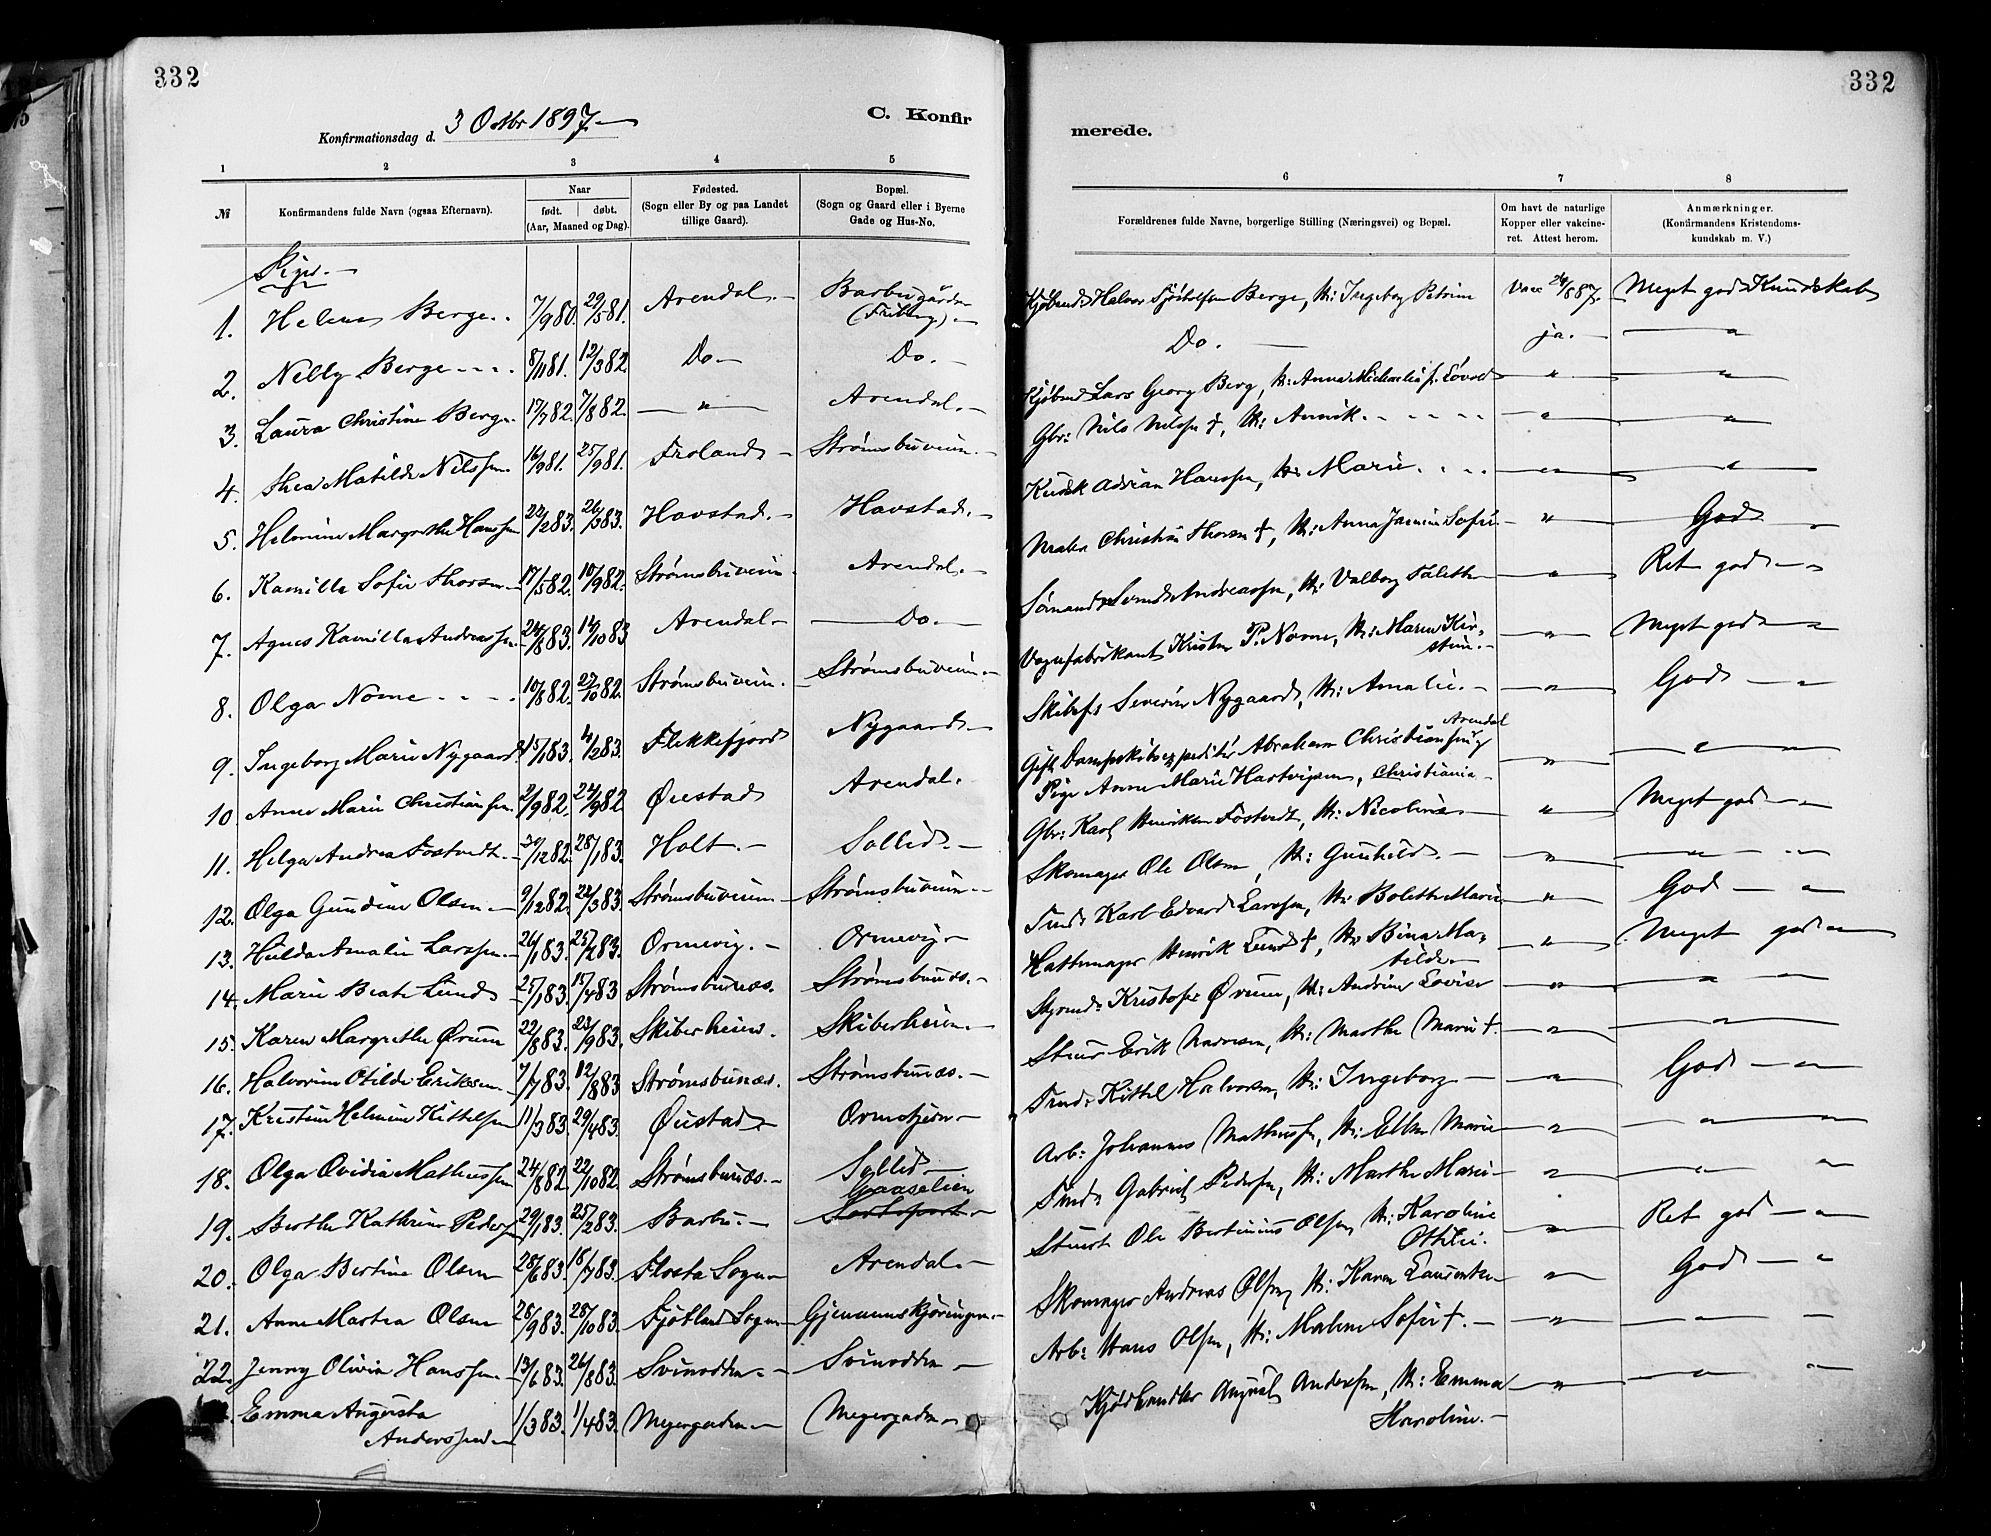 332
332
Konfirmationsdag d. 3 Oktbr 1897.
C. Konfirmerede.
1 2 3 4 5 6 7 8
№ Konfirmandens fulde Navn (ogsaa Efternavn). Naar født. døbt. (Aar, Maaned og Dag). Fødested. (Sogn eller By og paa Landet tillige Gaard). Bopæl. (Sogn og Gaard eller i Byerne Gade og Hus-No. Forældrenes fulde Navne, borgerlige Stilling (Næringsvei) og Bopæl. Om havt de naturlige Kopper eller vakcineret. Attest herom. Anmærkninger. (Konfirmandens Kristendomskundskab m. V.)
Piger.
1. Helene Berge. 7/9 80. 29/5 81. Arendal. Barbugården Halvor Berge, H: Ingeborg Petrine Vacc 24/8 87. Meget god Kundskab
2. Nelly Berge 8/11 81. 12/3 82. Do Do. Do. ja. "
3. Laura Christine Berg 17/7 82. 7/8 82. " Arendal. Lars Georg Berg, H: Anna " "
4. Thea Matilde Nilssen 16/9 81. 25/9 81. Froland Strømsbuveien. Gbr: Nils Nilssen †, H: Annik. " "
5. Helmine Margrethe Hanssen 22/2 83. 26/3 83. Havstad. Havstad. Kudsk Adrian Hanssen, H: Marie. " "
6. Kamilla Sofie Thorsen 17/5 82. 10/9 82. Strømsbuveien. Arendal. Christian Thorsen †, H: Anna Sofie " God "
7. Agnes Kamilla Andreassen 24/8 83. 14/10 83 Arendal Do. Sømand Svend Andreassen, H: Valborg Talette " Ret god "
8. Olga Nome 10/8 82. 27/10 82. Strømsbuveien. Strømsbuveien. Vognfabrikant Kristen P. Nome, H: Maren Kirstine. " Meget god "
9. Ingeborg Marie Nygaard 15/1 83. 4/2 83. Flekkefjord Nygaard Skibsf. Severin Nygaard, H: Amalie. " God "
10. Anne Marie Christiansen 2/9 82. 24/9 82 Øiestad Arendal. Gift Dampskibsexpeditør Abraham Christiansen, Arendal Pige Anne Marie Hartvigsen, Christiania " "
11. Helga Andrea Fostvedt. 30/12 82. 28/1 83. Holt. Sollid. Gbr: Karl Henriksen Fostvedt, H: Nicoline " Meget god "
12. Olga Gundine Olsen 9/12 82. 22/3 83. Strømsbuveien Strømsbuveien. Skomager Ole Olsen, H: Gunhild. " " "
13. Hulda Amalie Larssen 26/1 83. 25/2 83. Ormevig. Ormevig Tmd: Karl Edvard Larssen, H: Bolette Marie " God "
14. Marie Beate Lund 25/1 83. 15/4 83 Strømsbunæs. Strømsbunæs. Hattemager Henrik Lund †, H: Bina Matilde " Meget god
15. Karen Margrethe Ørum 22/8 83. 23/9 83. Skiberheien. Skiberheien. Kristofer Ørum, H: Andrine Lovise " " "
16. Halvorine Otilde Eriksen 7/7 83. 12/8 83 Strømsbunæs. Strømsbunæs. Stuer Erik H: Marthe Marie †. " "
17. Kristine Helmine Kittelsen 11/3 83. 29/4 83. Øiestad Tmd: Kittel Halvorsen, H: Ingeborg " God "
18. Olga Ovidia Mathiassen 24/8 82. 22/10 82. Strømsbunæs. Sollid Arb: Johannes H: Ellen Marie " " "
19. Berthe Kathrine Pedersen 29/1 83. 25/2 83. Barbu. Gaaselien Tmd: Gabriel Pedersen, H: Marthe Marie " " "
20. Olga Bertine Olsen 28/6 83. 18/7 83. Flosta Sogn Arendal. Ole Bertinius Olsen, H: Karoline Othilie. " Ret god "
21. Anne Martea Olsen 28/9 83. 28/10 83. Fjotland Sogn Gjennemskjæringen. Skomager Andreas Olsen, H: Karen Laurentse " God "
22. Jenny Olivia Hanssen 13/6 83. 26/8 83. Svinodden Svinodden Arb: Hans Olsen, H: Malene Sofie †. " " "
Emma Augusta Anderssen 1/3 83. 1/4 83. Meyergaden Meyergaden Kjødhandler August Andersen, H: Emma Karoline. " " "